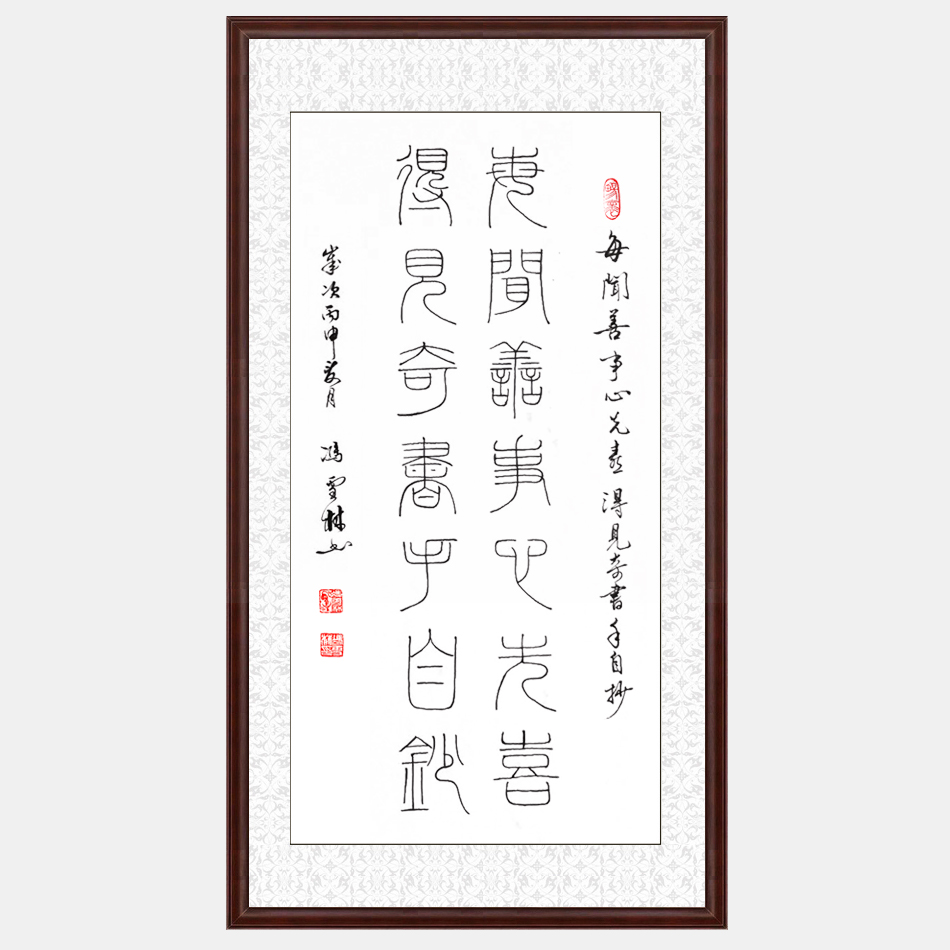 每聞善事心先喜 得見奇書手自抄
每聞譱事心先喜
得見奇書手自鈔
歲次丙申夏月 馮雪林書